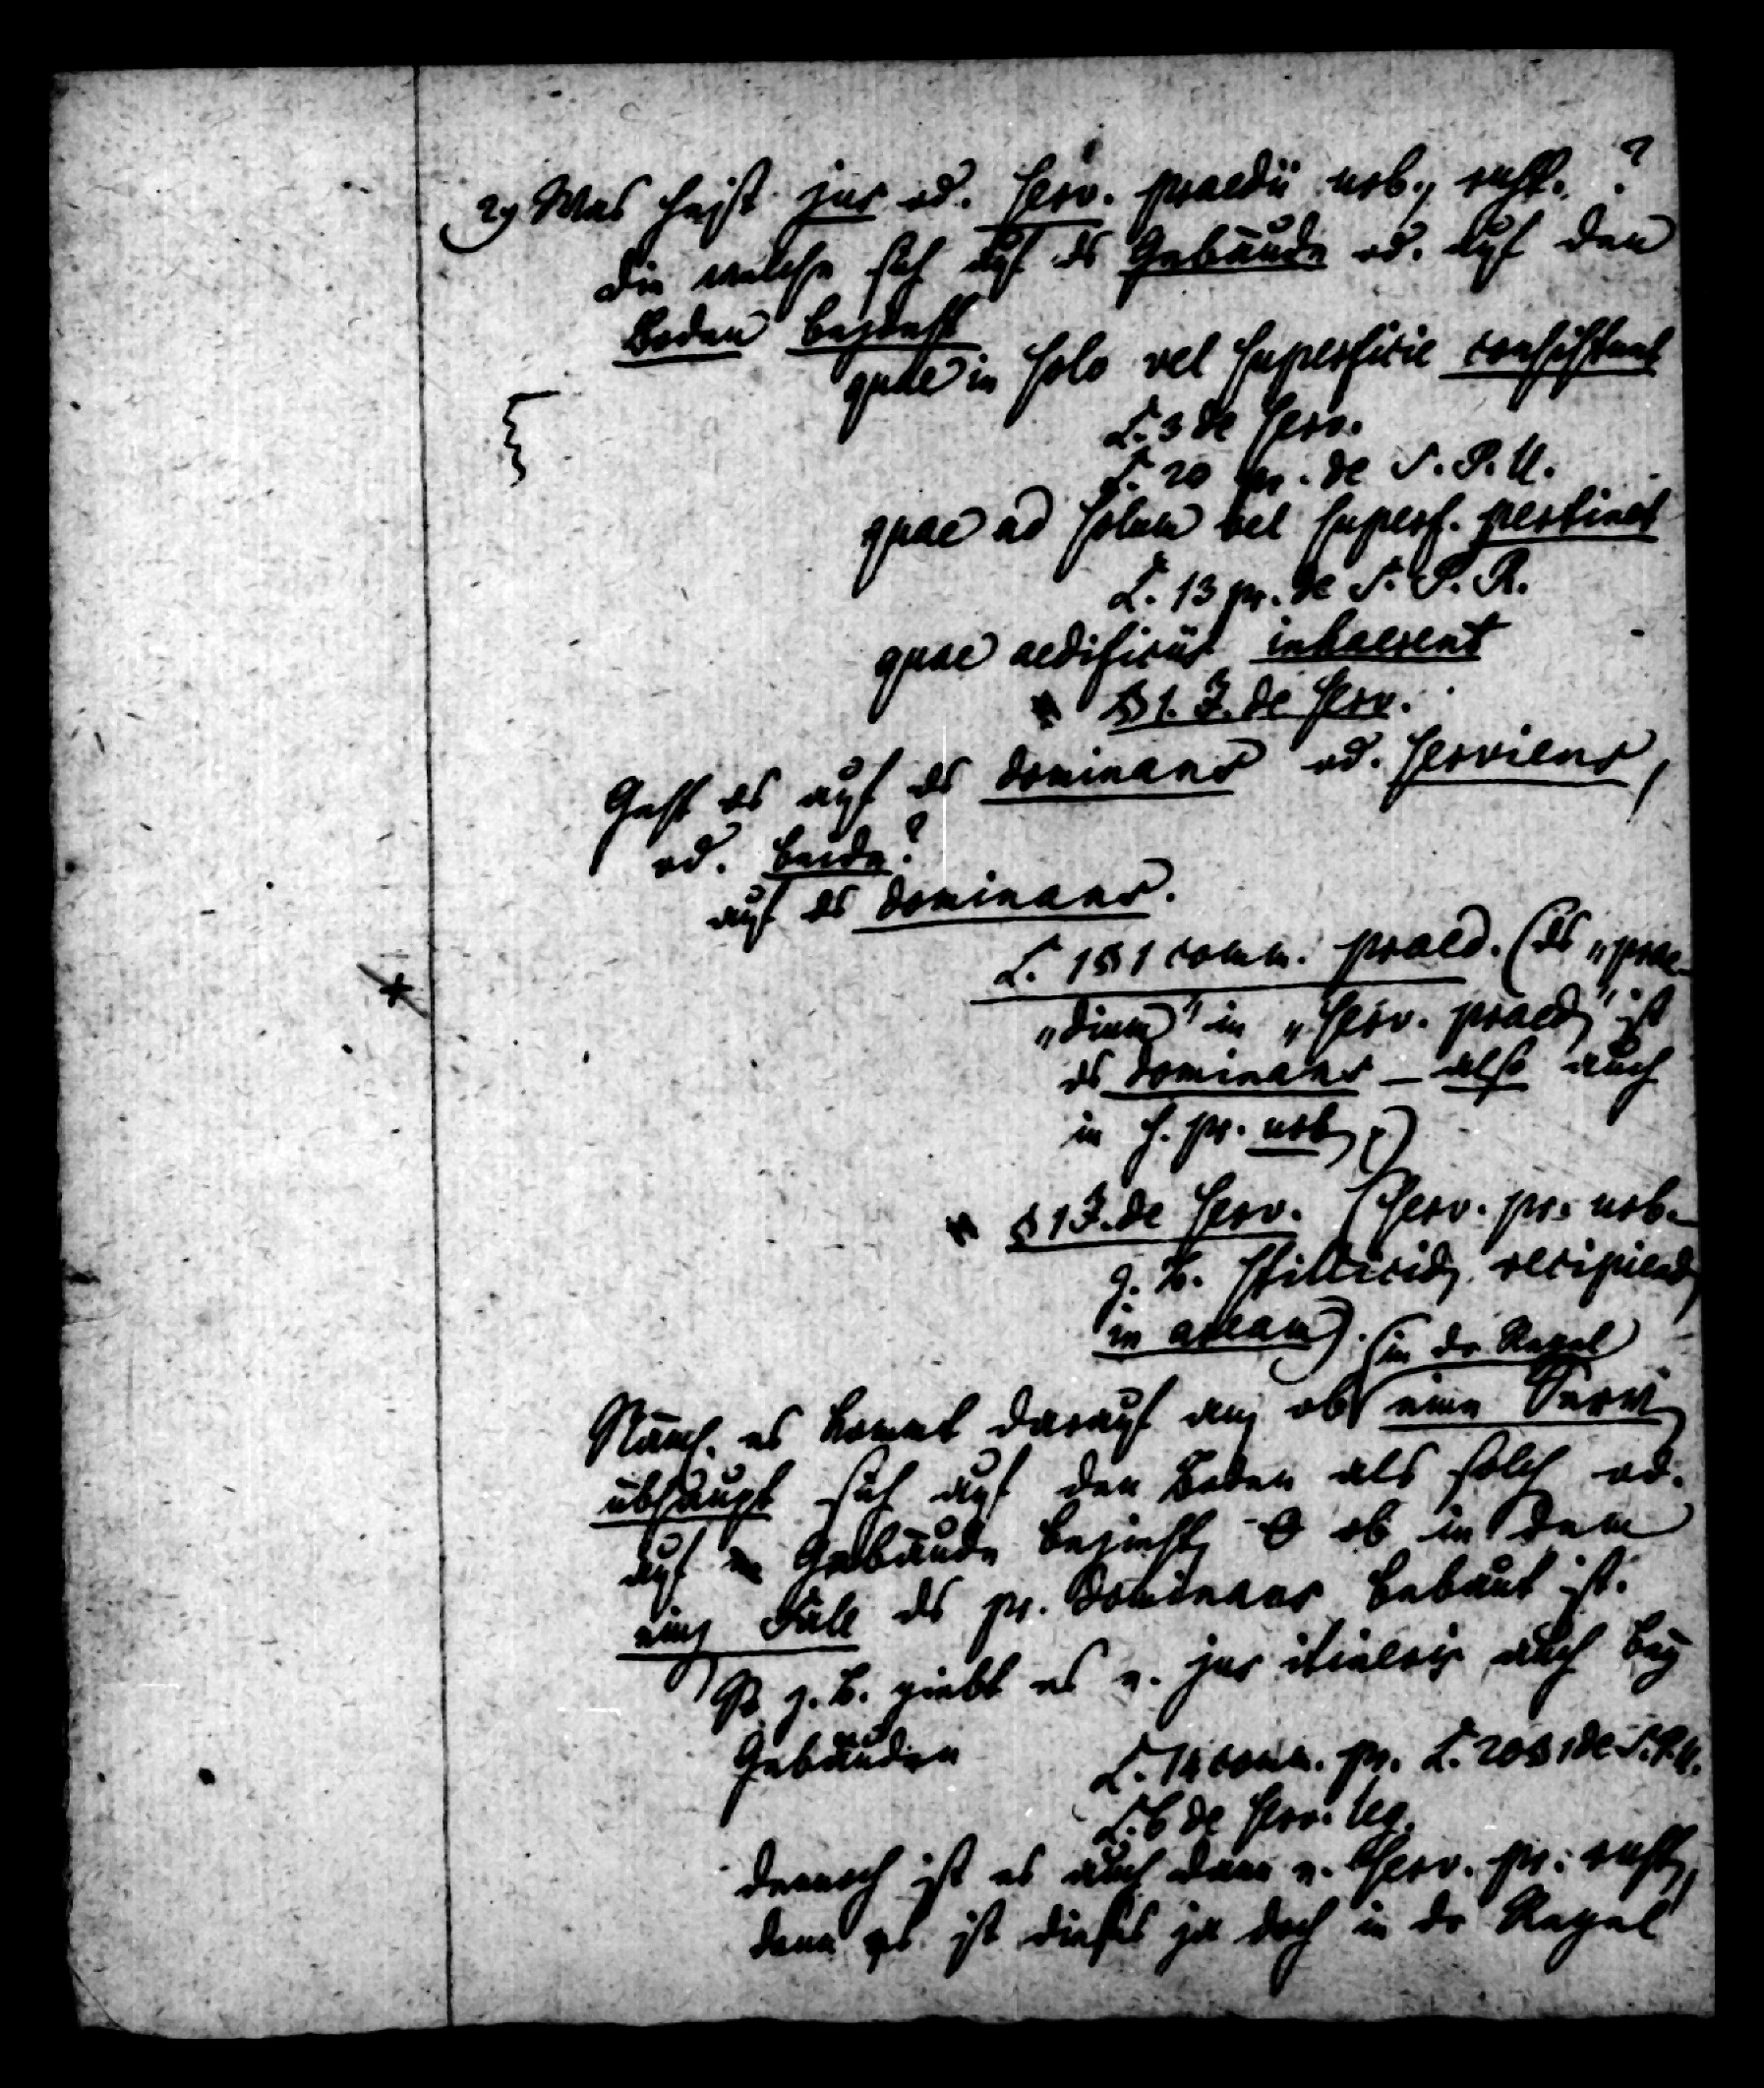 2) Was heist jus od. serv. praedii urb., rust.?
die welche sich auf ds Gebäude od. auf den
Boden bezieht
quae in solo vel superficie consistunt
L. 3 de serv.
L. 20 pr. de S. P. U.
quae ad solum vel superf. pertinet
L. 13 pr. de S. P. R.
quae aedificiis inhaerent
* § 1. I. de serv.
Geht es auf ds dominans od. serviens,
od. beide?
auf ds dominans.
L. 1 § 1 comm. praed. (ds „prae-
„dium" in „serv. praed" ist
ds dominans – also auch
in s. pr. urb
* § 1 I. de serv. (serv. pr. urb.
z. B. stillicid. recipiend
in aream).
(in dr Regel
Näml. es kommt darauf an, ob eine Servi
übhaupt sich auf den Boden als solch od.
auf Gebäude bezieht, ob in dem
einz Fall ds pr. dominans bebaut ist.
So z. B. giebt es e. jus itineris auch bey
Gebäuden
L. 14 comm. pr. L. 20 § 1 de S. P. U.
L. 6 de serv. leg.
dennoch ist es auch dann e. serv. pr. rust,
denn es ist dieses ja doch in dr Regel